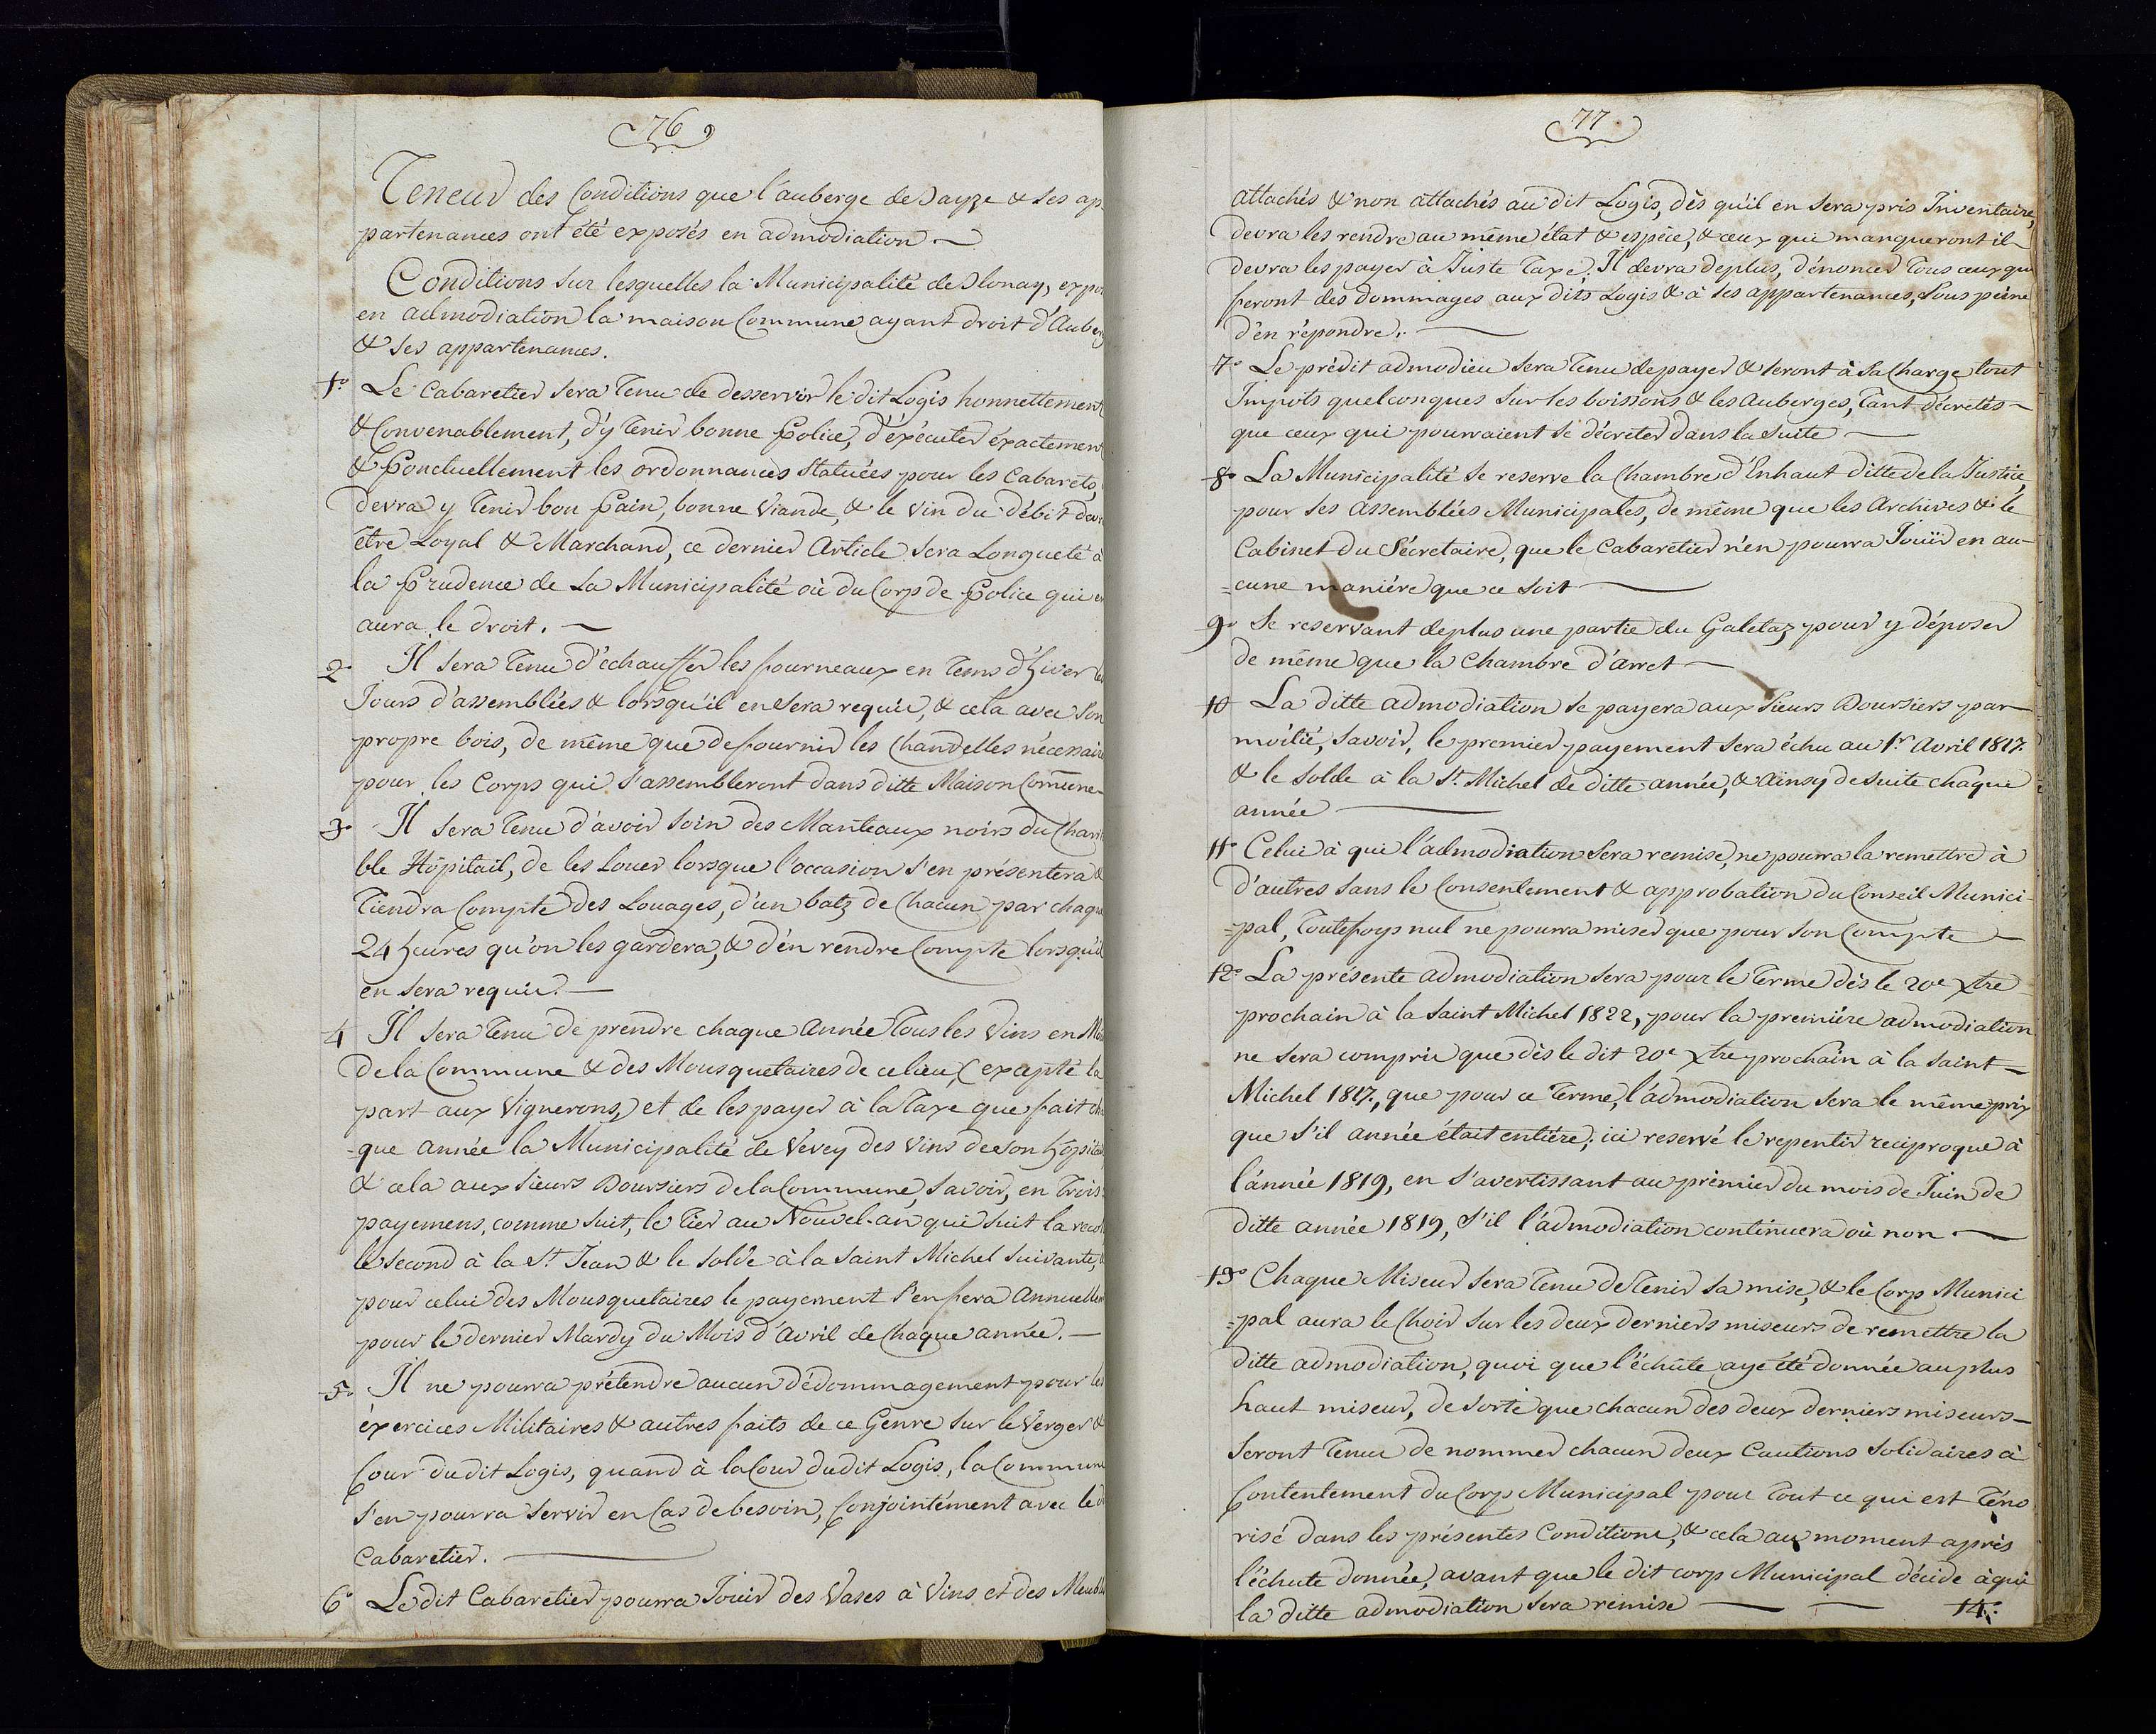 76
Teneur des Conditions que l'auberge de Jayze & ses ap-
partenances ont été exposés en admodiation —
Conditions sur lesquelles la Municipalité de Blonay, expo
en admodiation la maison Commune ayant droit d'Auberg
& ses appartenances.
1º Le Cabaretier sera tenu de desservir le dit Logis honnettement
& Convenablement, d'y tenir bonne Police, d'éxécuter éxactement
& Ponctuellement les ordonnances statuées pour les Cabarets,
devra y tenir bon Pain, bonne Viande, & le Vin du débit devr
être Loyal & Marchand, ce dernier Article sera Longueté à
la Prudence de La Municipalité où du Corp de Police qui en
aura le droit. —
2º Il sera tenu d'échauffer les fourneaux en tems d'hiver les
Jours d'assemblées & lorsqu'il en sera requis, & cela avec son
propre bois, de même que de fournir les Chandelles nécessaire
pour les Corps qui s'assembleront dans ditte Maison Comune-
3º Il sera tenu d'avoir soin des Manteaux noirs du Charit
ble Hôpitail, de les Louer lorsque l'occasion s'en présentera &
tiendra Compte des Louages, d'un batz de Chacun par chaque
24 heures qu'on les gardera, & d'en rendre Compte lorsqu'il
en sera requis. —
4 Il sera tenu de prendre chaque Année tous les Vins en Mou
de la Commune & des Mousquetaires de ce lieu, (excepté la
part aux Vignerons,) et de les payer à la Taxe que fait cha
-que Année la Municipalité de Vevey des Vins de son hôpital
& cela aux Sieurs Boursiers de la Commune, Savoir, en trois
payemens, comme suit, le tier au Nouvel-an qui suit la recol
le second à la St. Jean & le solde à la Saint Michel suivante, &
pour celui des Mousquetaires le payement s'en fera Annuellem
pour le dernier Mardy du Mois d'Avril de Chaque année. —
5º Il ne pourra prétendre aucun dédommagement pour les
éxercices Militaires & autres faits de ce Genre sur le Verger &
Cour du dit Logis, quand à la Cour du dit Logis, la Commune
s'en pourra servir en Cas de besoin, Conjointément avec le d
Cabaretier. —
6º Le dit Cabaretier pourra Jouir des Vases à Vins et des Meubles
77
attachés & non attachés au dit Logis, dès qu'il en sera pris Inventaire,
devra les rendre au même état & espèce, & ceux qui manqueront il
devra les payer à Juste Taxe. Il devra deplus, dénoncer Tous ceux qui
feront des dommages aux dits Logis & à ses appartenances, sous peine
d'en répondre. —
7º Le prédit admodieu sera tenu de payer & seront à sa Charge tout
Impots quelconques sur les boissons & les Auberges, tant décretés —
que ceux qui pourraient se décreter dans la suite —
8º La Municipalité se reserve la Chambre d'Enhaut ditte de la Justice,
pour ses Assemblées Municipales, de même que les Archives & le
Cabinet du Sécretaire, que le Cabaretier n'en pourra Jouïr en au-
=cune maniére que ce soit —
9º Se reservant deplus une partie du Galetaz pour y déposer
de même que la Chambre d'arret —
10 La ditte admodiation se payera aux Sieurs Boursiers par
moitié, Savoir, le premier payement sera échu au 1r Avril 1817.
& le solde à la St. Michel de ditte année, & Ainsy desuite chaque
année —
11º Celui à qui l'admodiation sera remise, ne pourra la remettre à
d'autres sans le Consentement & approbation du Conseil Munici-
=pal, Toutefoys nul ne pourra miser que pour son Compte —
12º La présente admodiation sera pour le terme dès le 20e Xbre
prochain à la Saint Michel 1822, pour la première admodiation
ne sera compris que dès le dit 20e Xbre prochain à la Saint =
Michel 1817., que pour ce Terme, l'admodiation sera le même prix
que s'il année était entiére; ici reservé le repentir reciproque à
l'année 1819, en s'avertissant au prémier du mois de Juin de
ditte année 1819, s'il l'admodiation continuera où non —
13º Chaque Miseur sera tenu de tenir sa mise, & le Corp Munici
=pal aura le Choix sur les deux derniers miseurs de remettre la
ditte admodiation, quoi que l'échûte aye été donnée au plus
haut miseur, de sorte que chacun des deux derniers miseurs —
seront tenu de nommer chacun deux Cautions solidaires à
Contentement du Corp Municipal pour tout ce qui est téno
risé dans les présentes Conditions, & cela au moment après
l'échute donnée, avant que le dit corp Municipal décide à qui
la ditte admodiation sera remise — — 14º